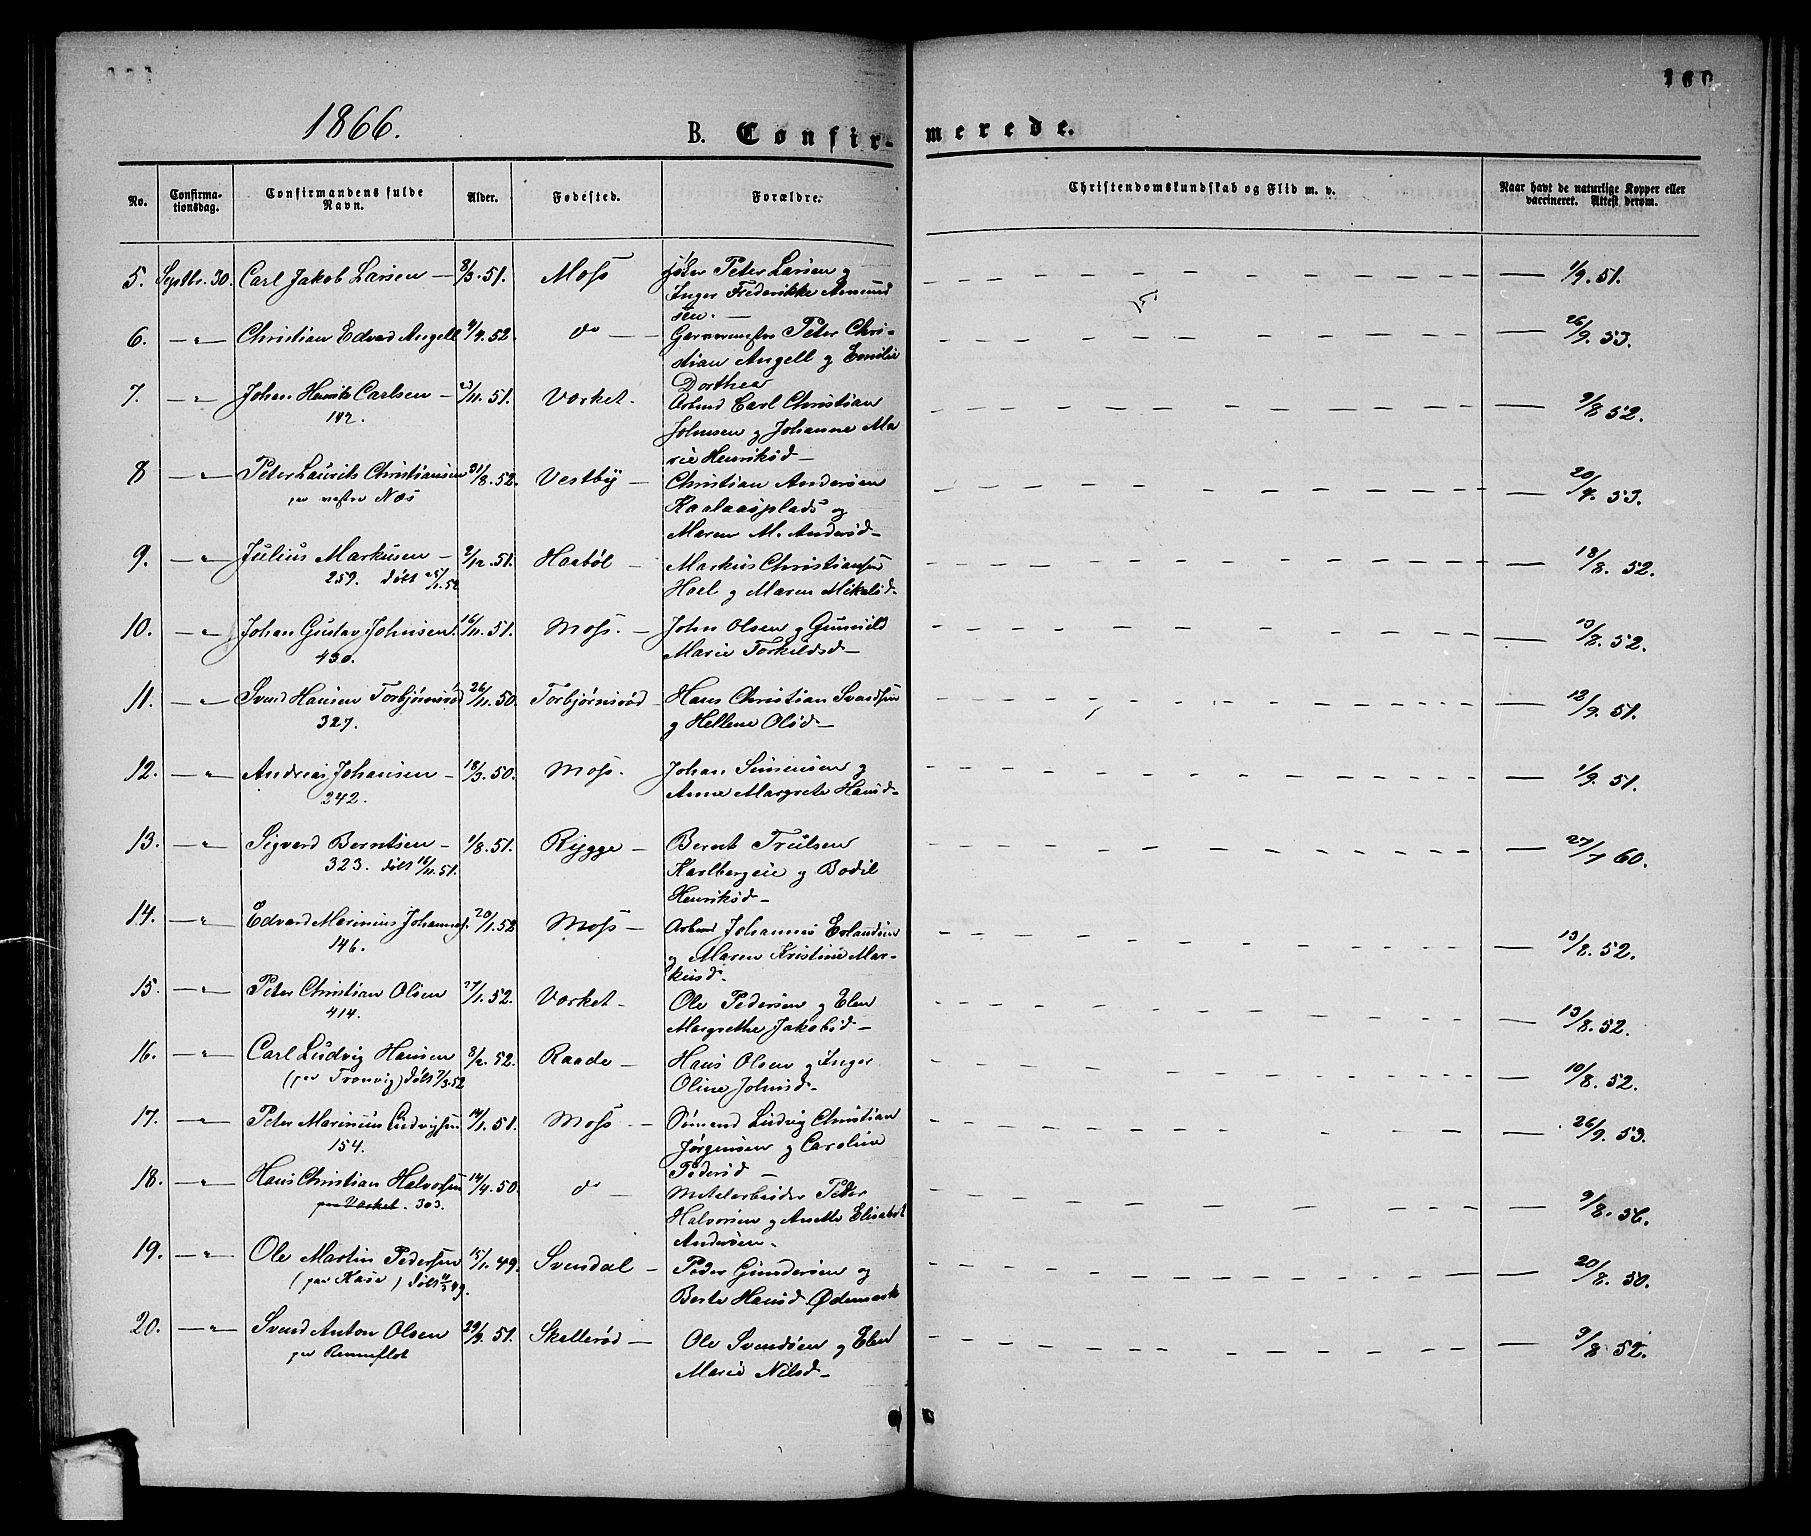 1866.
B. Confir-
merede.
160
No.
Confirma-
tionsdag.
Confirmandens fulde
Navn.
Alder.
Fødested.
Forældre.
Christendomskundskab og Flid m. v.
Naar havt de naturlige Kopper eller
vaccineret. Attest derom.
5. Septbr. 30. Carl Jakob Larsen — 8/3. 51. Moss Peter Larsen og — 1/9. 51.
Inger Frederikke Amund
sen. —
6. — " — Christian Edvard Angell 9/4. 52. do — Garvermester Peter Chri- — 26/9. 53.
stian Angell og Emilie
Dorthea
7. — " — Johan Henrik Carlsen — 23/11. 51. Værket — Arbmd Carl Christian — 9/8 52.
142. Johnsen og Johanne Ma
rie Henriksd —
8 — " — Peter Laurits Christiansen 31/8. 52. Vestby — Christian Andersen — 20/4. 53.
pr vestre Næs Kaalaasplads og
Maren M. Andersd —
9. — " — Julius Markusen — 2/12. 51. Haabøl — Markus Christiansen — 18/8. 52.
259. døbt 25/1. 52 Hoel og Maren Mikelsd —
10. — " — Johan Gustav Johnsen. 16/11. 51. Moss. — John Olsen og Gunild — 13/8. 52.
430. Marie Torkildsd —
11. — " — Svend Hansen Torbjørnsrød 26/11. 50. Torbjørnsrød — Hans Christian Svendsen — 12/9. 51.
327. og Hellene Olsd —
12. — " — Andreas Johansen — 18/3. 50. Moss. Johan Simensen og — 1/9. 51.
242. Anne Margrete Hansd —
13. — " — Sigvard Berntsen — 1/8. 51. Rygge — Bernt Trulsen — 27/7 60.
323. døbt 16/11. 51. Karlbergeie og Bodil
Henriksd —
14. — " — Edvard Marinius Johannes. 20/1. 52 Moss — Arbmd Johannes Erlandsen — 13/8. 52.
146. og Maren Kristine Mar-
kusd.
15. — " — Peter Christian Olsen 27/1. 52. Værket — Ole Pedersen og Elen — 13/8. 52.
414. Margrethe Jakobsd —
16. — " — Carl Ludvig Hansen 8/2. 52. Raade — Hans Olsen og Inger — 10/8. 52.
(pr Tronvig) døbt 7/3. 52 Oline Johnsd —
17. — " — Peter Marinius Ludvigsen 14/1. 51. Moss — Sømand Ludvig Christian — 26/9. 53.
154. Jørgensen og Caroline
Pedersd —
18. — " — Hans Christian Halvorsen 14/4. 50. do — Metalarbeider Peder — 9/8. 56.
pr Værket. 303. Halvorsen og Anette Elisabet
Andersen —
19. — " — Ole Martin Pedersen 15/1. 49. Svendal — Peder Gundersen og — 20/8. 50.
(pr Kase) døbt 49. Berte Hansd Ødemark
20. — " — Svend Anton Olsen 29/9. 51. Skallerød — Ole Svendsen og Elen — 9/8 52.
pr Renneflot Marie Nilsd —